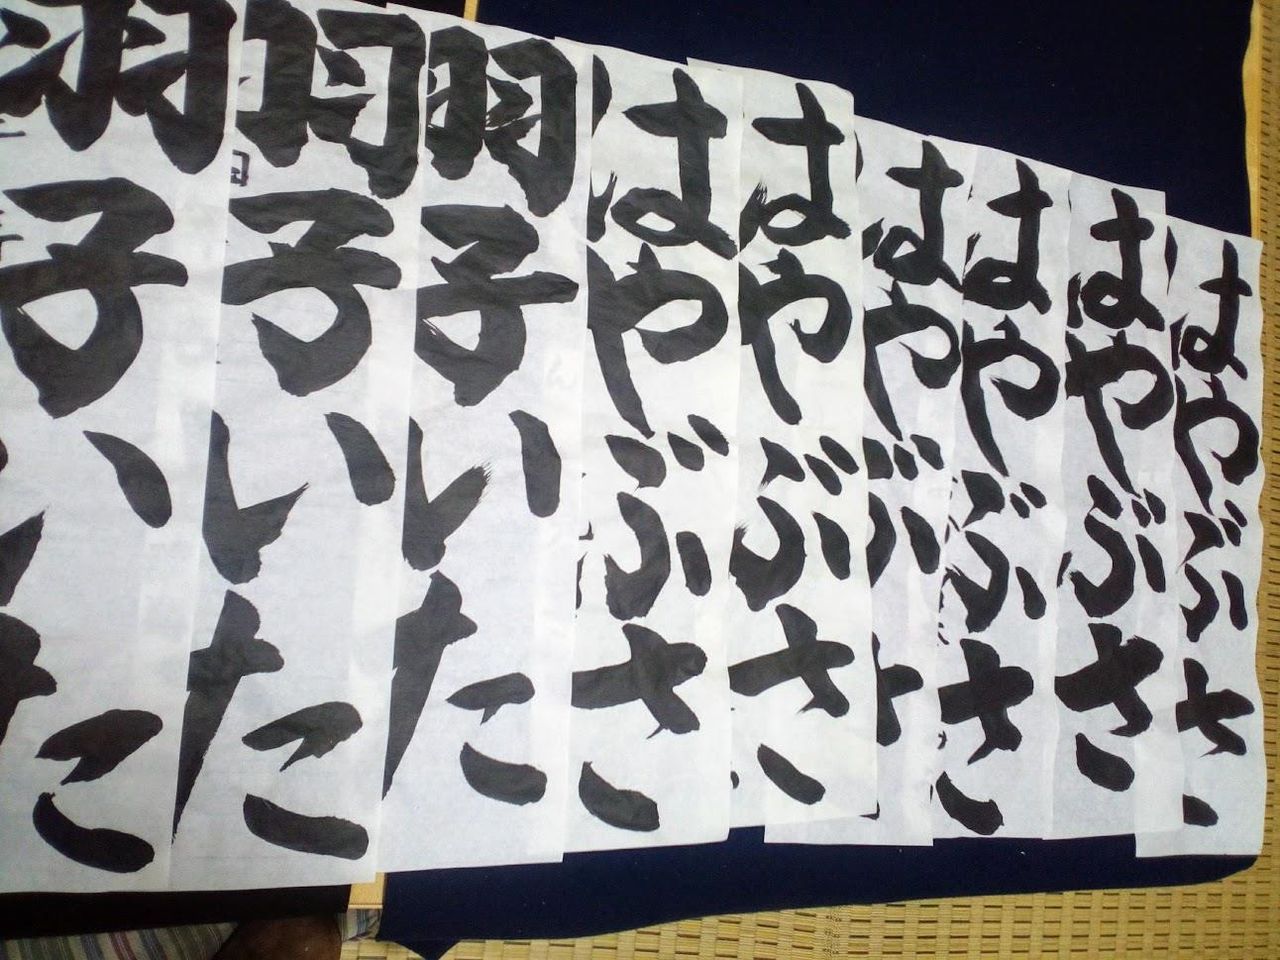 はやぶさ
はやぶさ
はやぶさ
はやぶさ
はやぶさ
はやぶさ
羽子いた
羽子いた
羽子いた